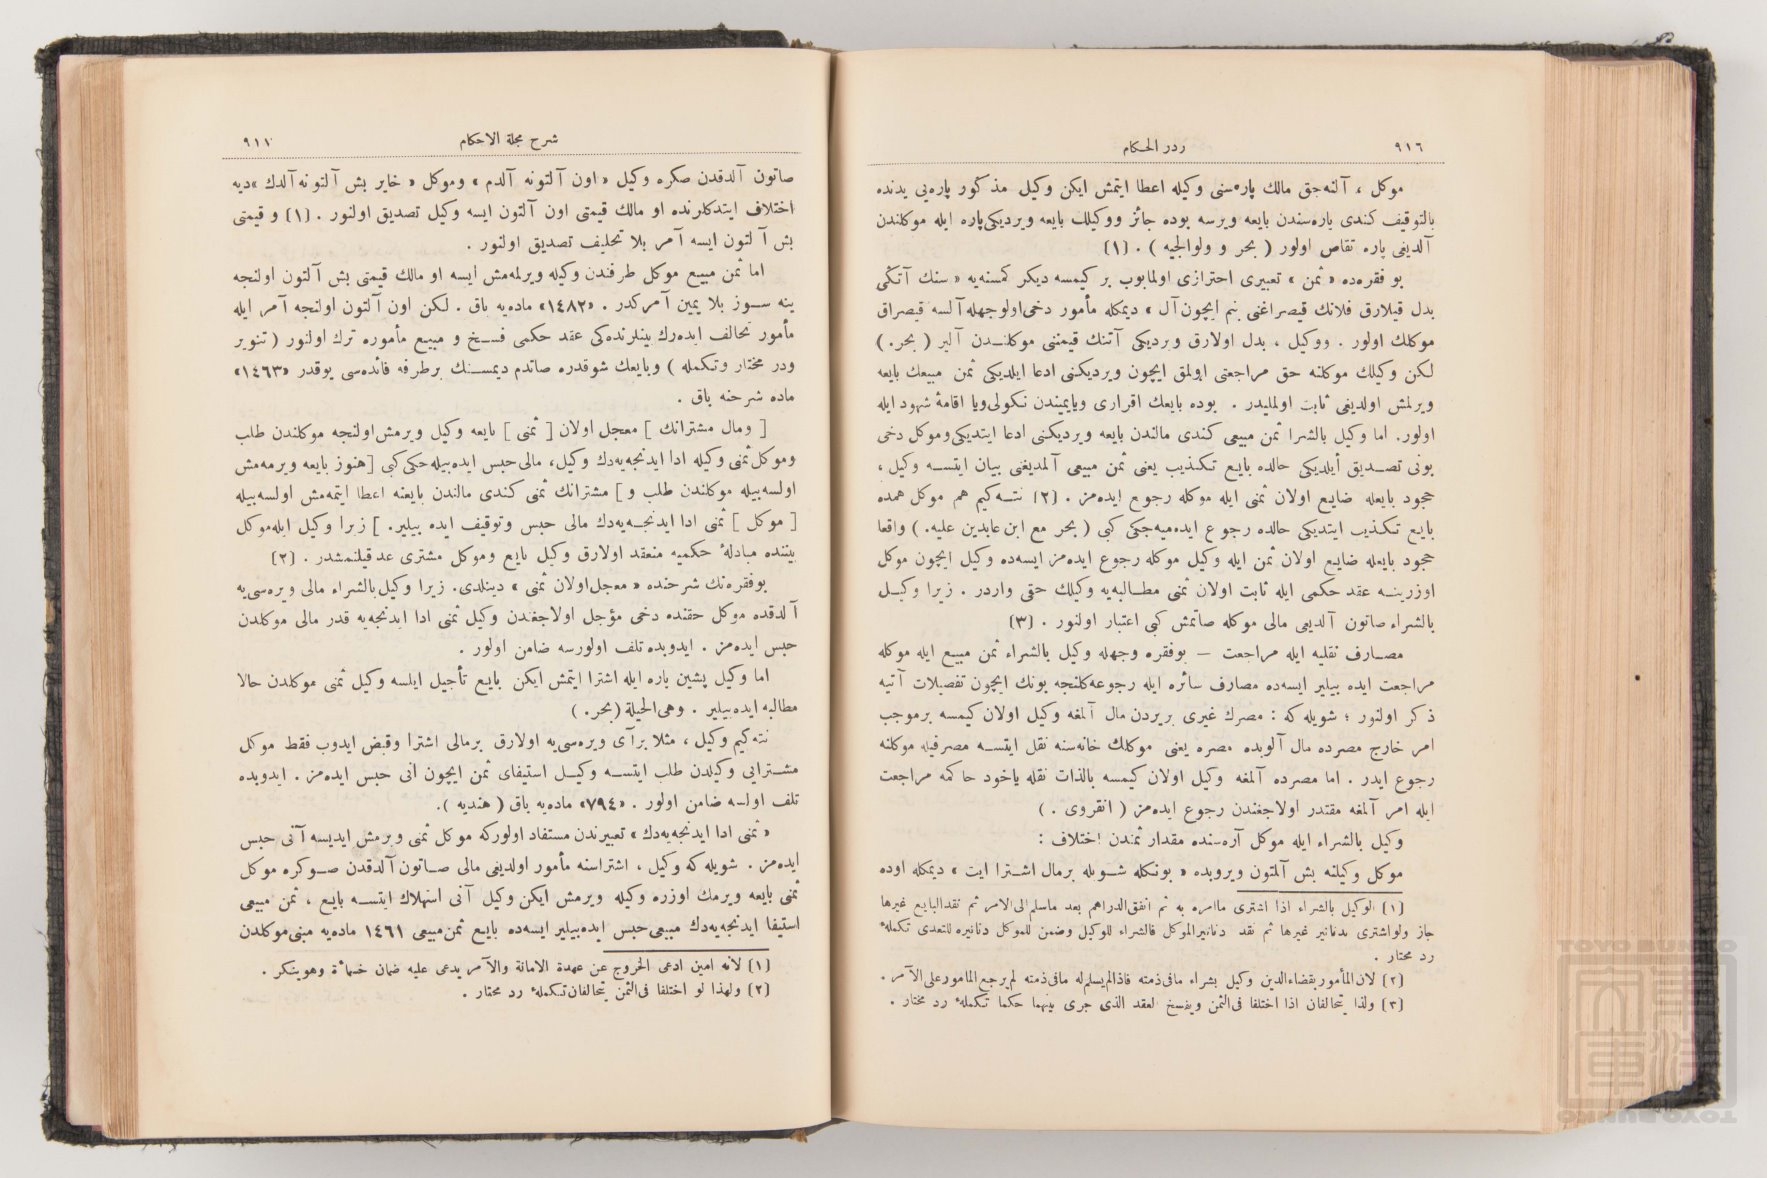 ٩١٦
درر الحكام
موكل ، آلنه‌جق مالك پاره‌سنی وكيله اعطا ايتمش ايكن وكيل مذكور پاره‌یی يدنده
بالتوقيف كندی پاره‌سندن بايعه ويرسه بوده جائز ووكيلك بايعه ويرديكی پاره ايله موكلندن
آلديغی پاره تقاص اولور ( بحر و ولوالجيه ) . [١]
بو فقره‌ده « ثمن » تعبيری احترازی اولمايوب بر كيمسه ديكر كمسنه‌يه « سنك آتكی
بدل قيلارق فلانك قيصراغنی بنم ايچون آل » ديمكله مأمور دخی اولوجهله آلسه قيصراق
موكلك اولور . ووكيل ، بدل اولارق ويرديكی آتنك قيمتنی موكلندن آلير ( بحر . )
لكن وكيلك موكلنه حق مراجعتی اولمق ايچون ويرديكنی ادعا ايلديكی ثمن مبيعك بايعه
ويرلمش اولديغی ثابت اولمليدر . بوده بايعك اقراری ويايميندن نكولی ويا اقامهٔ شهود ايله
اولور. اما وكيل بالشرا ثمن مبيعی كندی مالندن بايعه ويرديكنی ادعا ايتديكی وموكل دخی
بونی تصديق أيلديكی حالده بايع تكذيب يعنی ثمن مبيعی آلمديغنی بيان ايتسه وكيل ،
جحود بايعله ضايع اولان ثمنی ايله موكله رجوع ايده‌مز . [٢] نته‌كيم هم موكل همده
بايع تكذيب ايتديكی حالده رجوع ايده‌ميه‌جكی كبی ( بحر مع ابن عابدين عليه. ) واقعا
جحود بايعله ضايع اولان ثمن ايله وكيل موكله رجوع ايده‌مز ايسه‌ده وكيل ايچون موكل
اوزرينه عقد حكمی ايله ثابت اولان ثمنی مطالبه‌يه وكيلك حقی واردر . زيرا وكيل
بالشراء صاتون آلديغی مالی موكله صاتمش كبی اعتبار اولنور . [٣]
مصارف نقليه ايله مراجعت — بوفقره وجهله وكيل بالشراء ثمن مبيع ايله موكله
مراجعت ايده بيلير ايسه‌ده مصارف سائره ايله رجوعه كلنجه بونك ايچون تفصيلات آتيه
ذكر اولنور ؛ شويله كه : مصرك غيری بريردن مال آلمغه وكيل اولان كيمسه برموجب
امر خارج مصرده مال آلوبده مصره يعنی موكلك خانه‌سنه نقل ايتسه مصرفيله موكلنه
رجوع ايدر . اما مصرده آلمغه وكيل اولان كيمسه بالذات نقله ياخود حاكمه مراجعت
ايله امر آلمغه مقتدر اولاجغندن رجوع ايده‌مز ( انقروی . )
وكيل بالشراء ايله موكل آره‌سنده مقدار ثمندن اختلاف :
موكل وكيلنه بش آلتون ويروبده « بونكله شويله برمال اشترا ايت » ديمكله اوده
[١] الوكيل بالشراء اذا اشتری ماامره به ثم انفق الدراهم بعد ماسلم الی الامر ثم نقد البايع غيرها
جاز ولواشتری بدنانير غيرها ثم نقد دنانير الموكل فالشراء للوكيل وضمن للموكل دنانيره للتعدی تكملهٔ
رد محتار .
[٢] لان المأمور بقضاء الدين وكيل بشراء مافی ذمته فاذا لم يسلم له مافی ذمته لم يرجع المامور علی الآمر .
[٣] ولذا يتحالفان اذا اختلفا فی الثمن ويفسخ العقد الذی جری بينهما حكما تكملهٔ رد محتار .
شرح مجلة الاحكام
٩١٧
صاتون آلدقدن صكره وكيل « اون آلتونه آلدم » وموكل « خاير بش آلتونه آلدك » ديه
اختلاف ايتدكلرنده او مالك قيمتی اون آلتون ايسه وكيل تصديق اولنور . [١] و قيمتی
بش آلتون ايسه آمر بلا تحليف تصديق اولنور .
اما ثمن مبيع موكل طرفندن وكيله ويرلمه‌مش ايسه او مالك قيمتی بش آلتون اولنجه
ينه سوز بلا يمين آمركدر . «١٤٨٢» ماده‌يه باق . لكن اون آلتون اولنجه آمر ايله
مأمور تحالف ايده‌رك بينلرنده‌كی عقد حكمی فسخ و مبيع مأموره ترك اولنور ( تنوير
ودر مختار وتكمله ) وبايعك شوقدره صاتدم ديمسنك برطرفه فائده‌سی يوقدر «١٤٦٣»
ماده شرحنه باق .
[ ومال مشترانك ] معجل اولان [ ثمنی ] بايعه وكيل ويرمش اولنجه موكلندن طلب
وموكل ثمنی وكيله ادا ايدنجه‌يه‌دك وكيل، مالی حبس ايده بيله‌جكی كبی [هنوز بايعه ويرمه‌مش
اولسه بيله موكلندن طلب و ] مشترانك ثمنی كندی مالندن بايعنه اعطا ايتمه‌مش اولسه بيله
[ موكل ] ثمنی ادا ايدنجه‌يه‌دك مالی حبس وتوقيف ايده بيلير. ] زيرا وكيل ايله موكل
بيننده مبادلهٔ حكميه منعقد اولارق وكيل بايع وموكل مشتری عد قيلنمشدر . [٢]
بوفقره‌نك شرحنده « معجل اولان ثمنی » دينلدی. زيرا وكيل بالشراء مالی ويره‌سی‌يه
آلدقده موكل حقنده دخی مؤجل اولاجغندن وكيل ثمنی ادا ايدنجه‌يه قدر مالی موكلندن
حبس ايده‌مز . ايدوبده تلف اولورسه ضامن اولور .
اما وكيل پشين پاره ايله اشترا ايتمش ايكن بايع تأجيل ايلسه وكيل ثمنی موكلدن حالا
مطالبه ايده بيلير . وهی الحيلة (بحر. )
نته‌كيم وكيل ، مثلا برآی ويره‌سی‌يه اولارق برمالی اشترا وقبض ايدوب فقط موكل
مشترایی وكيلدن طلب ايتسه وكيل استيفای ثمن ايچون انی حبس ايده‌مز . ايدوبده
تلف اولسه ضامن اولور . «٧٩٤» ماده‌يه باق ( هنديه ).
« ثمنی ادا ايدنجه‌يه‌دك » تعبيرندن مستفاد اولوركه موكل ثمنی ويرمش ايديسه آنی حبس
ايده‌مز . شويله كه وكيل ، اشتراسنه مأمور اولديغی مالی صاتون آلدقدن صوكره موكل
ثمنی بايعه ويرمك اوزره وكيله ويرمش ايكن وكيل آنی استهلاك ايتسه بايع ، ثمن مبيعی
استيفا ايدنجه‌يه‌دك مبيعی حبس ايده بيلير ايسه‌ده بايع ثمن مبيعی ١٤٦١ ماده‌يه مبنی موكلدن
[١] لأنه امين ادعی الخروج عن عهدة الامانة والآمر يدعی عليه ضمان خسمأة وهو ينكر .
[٢] ولهذا لو اختلفا فی الثمن يتحالفان تكملهٔ رد محتار .
TOYO BUNKO